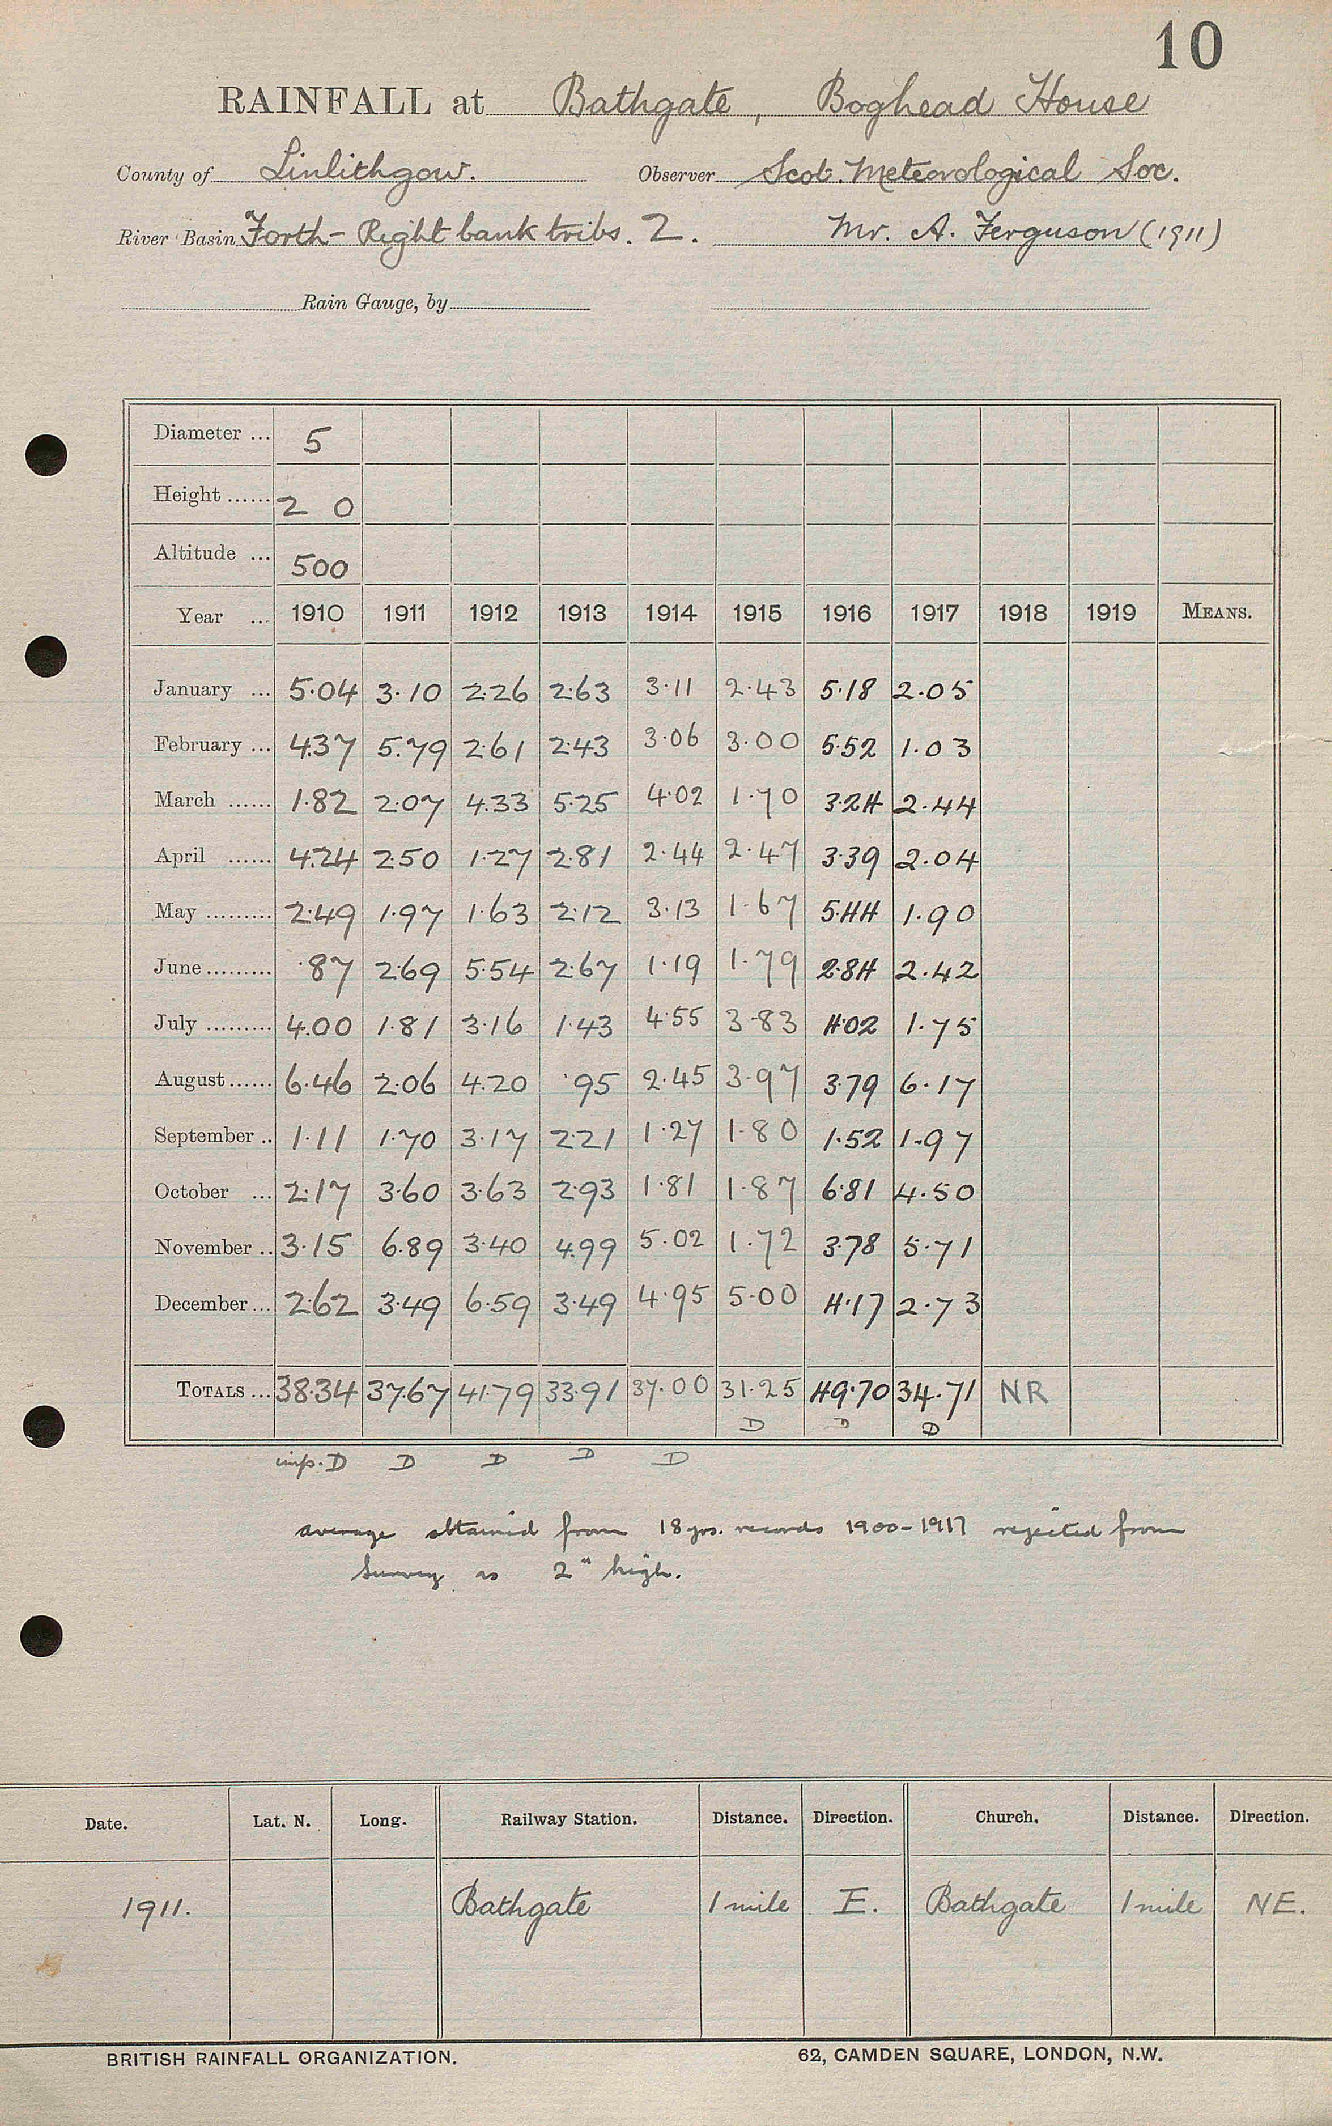 10
RAINFALL at Bathgate, Boghead House
County of Linlithgow. Observer Scot. Meteorological Soc.
River Basin Forth - Right bank tribs. 2. Mr. A. Ferguson (1911)
Rain Gauge, by
Diameter ... 5
Height ...... 2 0
Altitude ... 500
Year ... 1910 1911 1912 1913 1914 1915 1916 1917 1918 1919 MEANS.
January ... 5.04 3.10 2.26 2.63 3.11 2.43 5.18 2.05
February ... 4.37 5.79 2.61 2.43 3.06 3.00 5.52 1.03
March ...... 1.82 2.07 4.33 5.25 4.02 1.70 3.24 2.44
April ...... 4.24 2.50 1.27 2.81 2.44 2.47 3.39 2.04
May ......... 2.49 1.97 1.63 2.12 3.13 1.67 5.44 1.90
June ......... .87 2.69 5.54 2.67 1.19 1.79 2.84 2.42
July ......... 4.00 1.81 3.16 1.43 4.55 3.83 4.02 1.75
August ...... 6.46 2.06 4.20 .95 2.45 3.97 3.79 6.17
September .. 1.11 1.70 3.17 2.21 1.27 1.80 1.52 1.97
October ... 2.17 3.60 3.63 2.93 1.81 1.87 6.81 4.50
November .. 3.15 6.89 3.40 4.99 5.02 1.72 3.78 5.71
December ... 2.62 3.49 6.59 3.49 4.95 5.00 4.17 2.73
TOTALS ... 38.34 37.67 41.79 33.91 37.00 31.25 49.70 34.71 NR
D D D
imp. D D D D D
average obtained from 18 yrs. records 1900-1917 rejected from
Survey as 2" high.
Date. Lat. N. Long. Railway Station. Distance. Direction. Church. Distance. Direction.
1911. Bathgate 1 mile E. Bathgate 1 mile NE.
BRITISH RAINFALL ORGANIZATION. 62, CAMDEN SQUARE, LONDON, N.W.